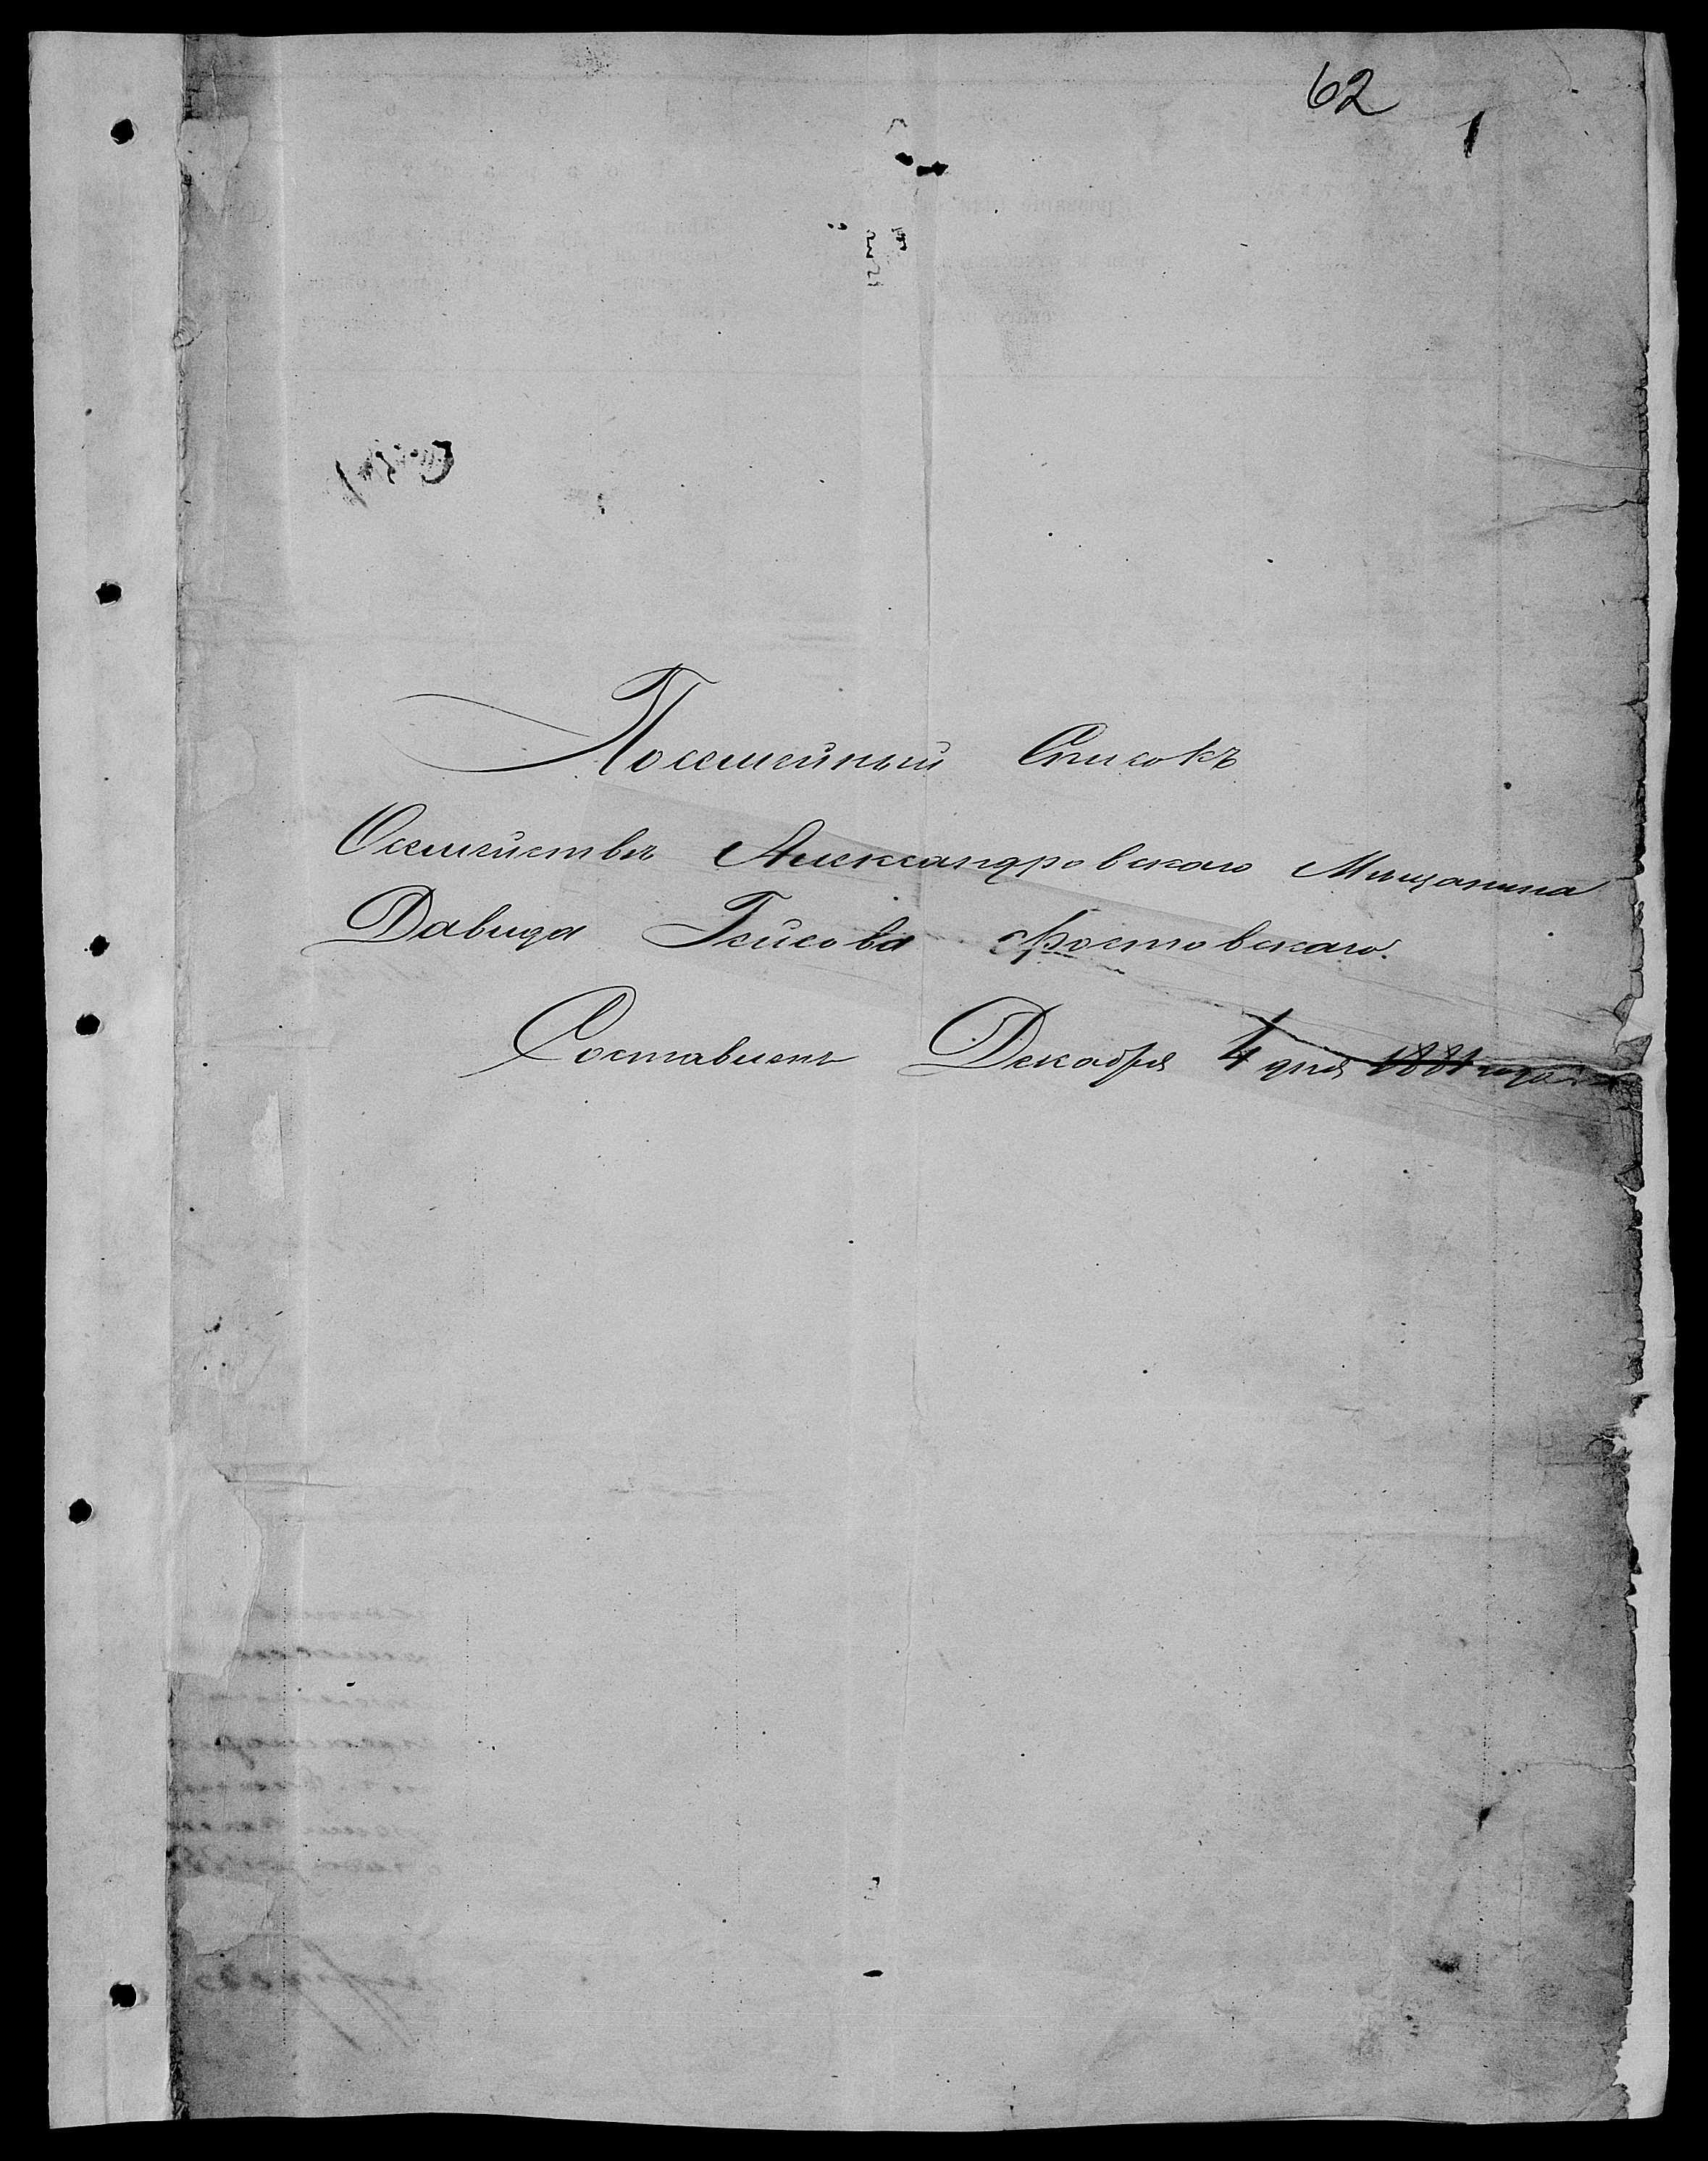 62
1
Посемейный Списокъ
О семействѣ Александровскаго Мещанина
Давида Гейсова Ростовскаго.
Составленъ Декабря 4 дня 1881 года